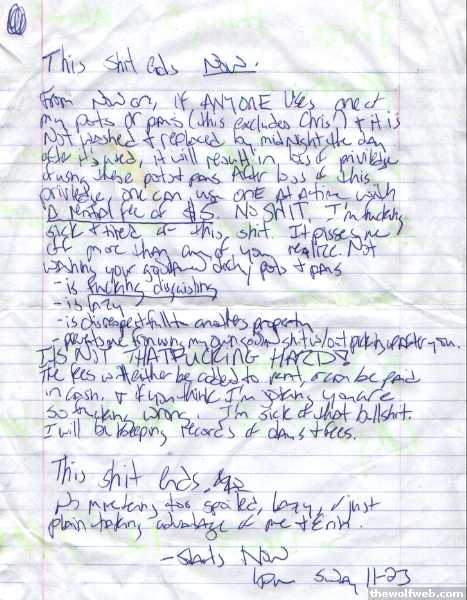 This shit ends Now.
From Now on, if ANYONE Uses one of
my pots or pans (this excludes Chris) & it is
Not washed & replaced by midnight the day
after it's used, it will result in loss of privilege
of using these pots & pans. After loss of this
privilege, one can use one At a time with
a rental fee of $5. NO SHIT. I'm fucking
sick & tired of this shit. It pisses me
off more than any of you realize. Not
washing your goddamn dirty pots & pans
- is fucking disgusting
- is lazy
- is disrespectful to anothers property
- prevents me from using my own shit w/out picking up after you.
IT IS NOT THAT FUCKING HARD!
The fees will either be added to rent, or can be paid
in cash. & if you think I'm joking you are
so fucking wrong. I'm sick of that bullshit.
I will be keeping records of days & fees.
This shit ends.
No more being too spoiled, lazy, & just
plain taking advantage of me & Erin.
- Starts Now
1pm Sunday 11-23
thewolfweb.com